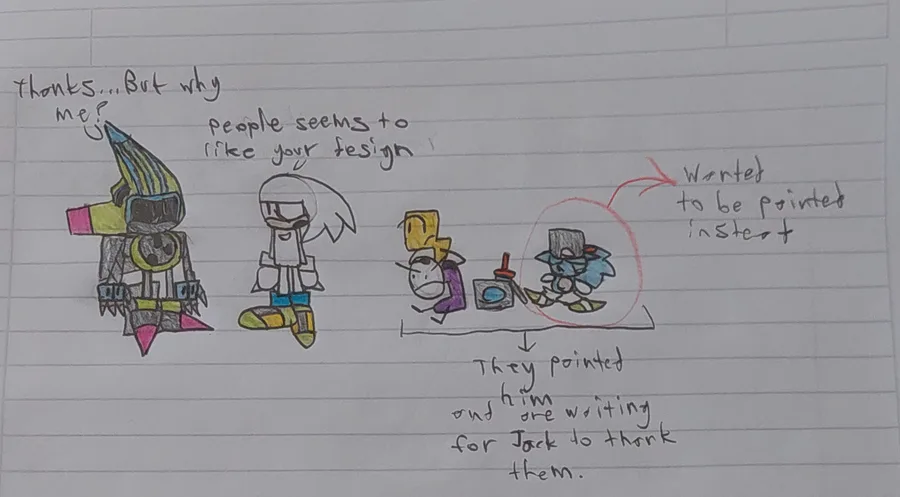 Thanks...But why
me?
people seems to
like your fesign
Wanted
to be pointed
insteat
They pointed
him
and are writing
for Jack to thank
them.